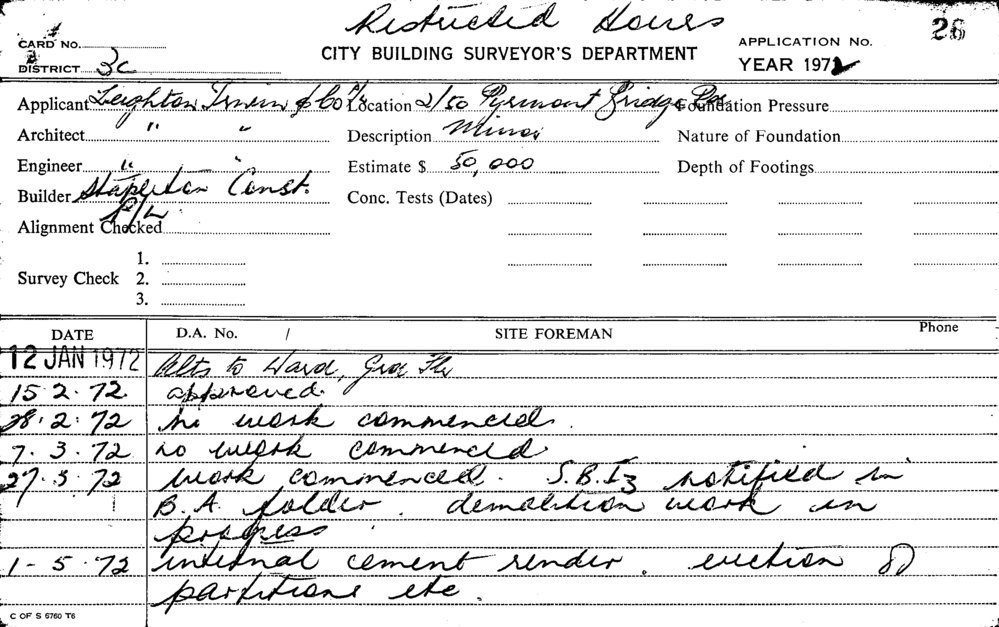 Restricted Hours
26
CARD NO.
CITY BUILDING SURVEYOR'S DEPARTMENT
APPLICATION No.
DISTRICT 3C
YEAR 1972
Applicant Leighton Irwin & Co P/L Location 2/50 Pyrmont Bridge Rd Foundation Pressure
Architect " " Description Minor Nature of Foundation
Engineer " " Estimate $ 50,000 Depth of Footings
Builder Stapleton Const. P/L Conc. Tests (Dates)
Alignment Checked
1.
Survey Check 2.
3.
DATE D.A. No. / SITE FOREMAN Phone
12 JAN 1972 Alts to Ward, Grd Flr
15.2.72 approved
28.2.72 no work commenced.
7.3.72 no work commenced
27.3.72 work commenced. S.B.I3 notified in
B.A. folder. demolition work in
progress
1-5.72 internal cement render. erection of
partitions etc.
C OF S 6760 T6